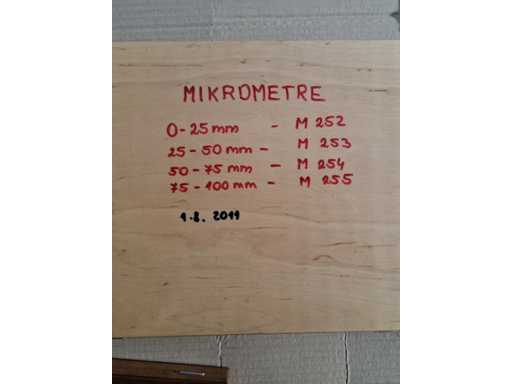 MIKROMETRE
0-25 mm - M 252
25-50 mm - M 253
50-75 mm - M 254
75-100 mm - M 255
1.8. 2011